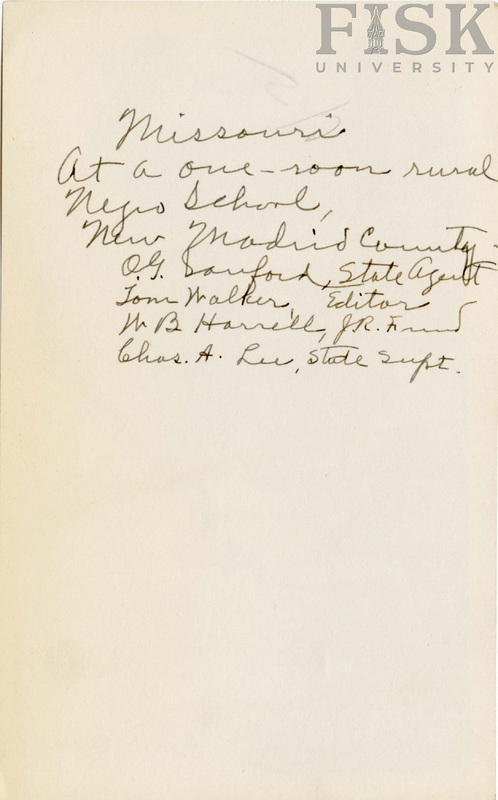 FISK
UNIVERSITY
Missouri
At a one-room rural
Negro School,
New Madrid County -
O.G. Sanford, State Agent
Tom Walker, Editor
W B Harrell, J.R. Fund
Chas. A. Lee, State Supt.